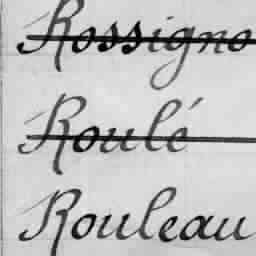 Rossigno
Roulé
Rouleau